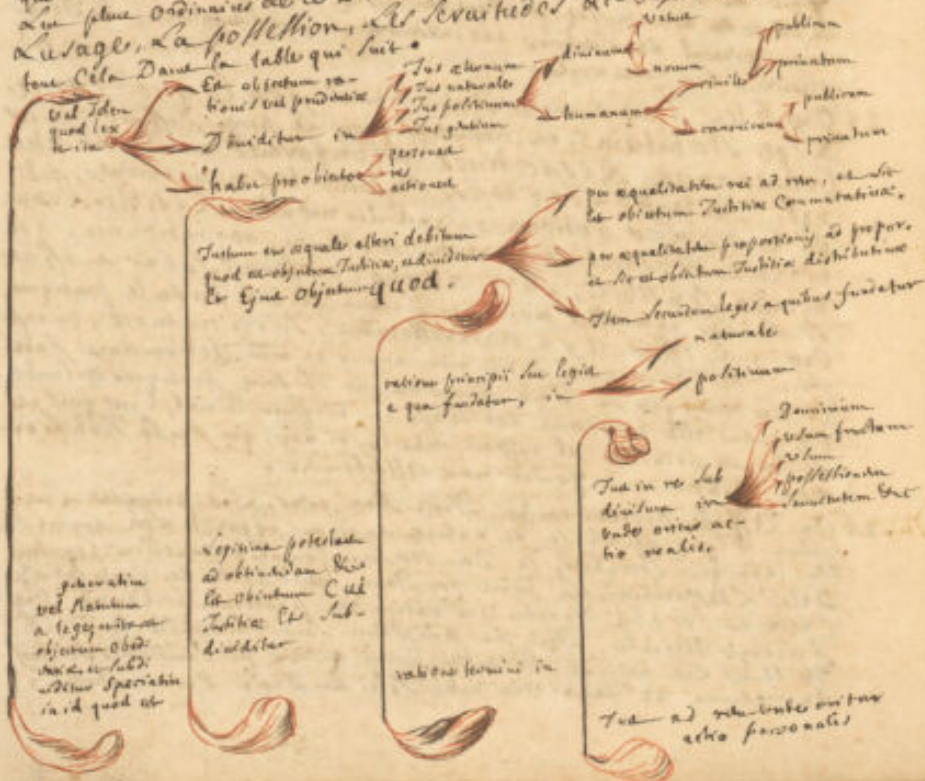 Les plus ordinaires de
Lusage, La possession, Les Servitudes
tout Cela Dans la table qui suit.
vel Idem
quod lex
et ita
Est objectum ra-
tionis vel prudentiæ
Dividitur in
habet pro objecto
Jus æternum
Jus naturale
Jus positivum
Jus gentium
personas
res
actiones
divinum
humanum
vetus
novum
civile
canonicum
publicum
privatum
publicum
privatum
Justum seu æquale alteri debitum
quod est objectum Justitiæ, et dividitur
Et Ejus Objectum quod.
per æqualitatem rei ad rem, et sic
Est objectum Justitiæ Commutativæ.
per æqualitatem proportionis ad propor.
et sic est objectum Justitiæ distributivæ
Item secundum leges a quibus fundatur
ratione principii seu legis
a qua fundatur, in
naturale
positivum
Jus in re sub
divisum in
unde oritur ac-
tio realis.
Dominium
usum fructum
usum
possessionem
servitutem &c
generatim
vel statutum
a lege
objectum obedi
et subdi
viditur speciatim
in id quod est
Legitima potestas
ad obtinendum
Est objectum Cui
Justitiæ Et Sub-
dividitur
ratione termini in
Jus ad rem unde oritur
actio personalis